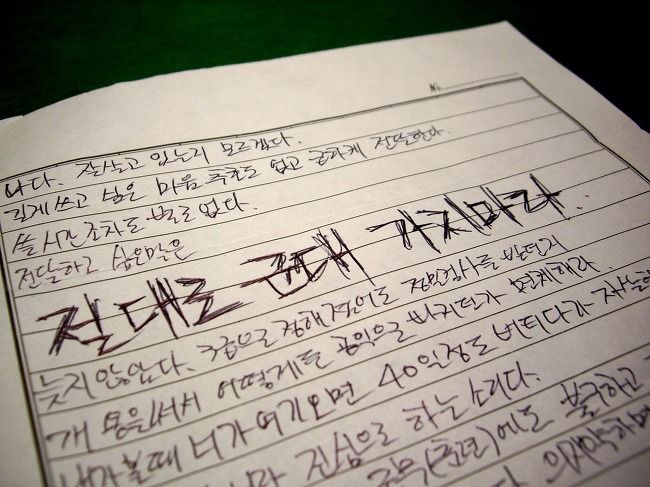 No.
나다. 잘살고 있는지 모르겠다.
길게 쓰고 싶은 마음 추호도 없고 급하게 전달한다.
쓸 시간조차도 별로 없다.
전달하고 싶은말은
절대로 군대 가지마라.
늦지 않았다. 3급으로 정해졌어도 정밀검사를 받던지
개 몽은써서 어떻게든 공익으로 빠지던가 면제해라.
내가 볼때 너가 여기오면 40일정도 버티다가 자살
진심으로 하는 소리다.
에도 불구하고